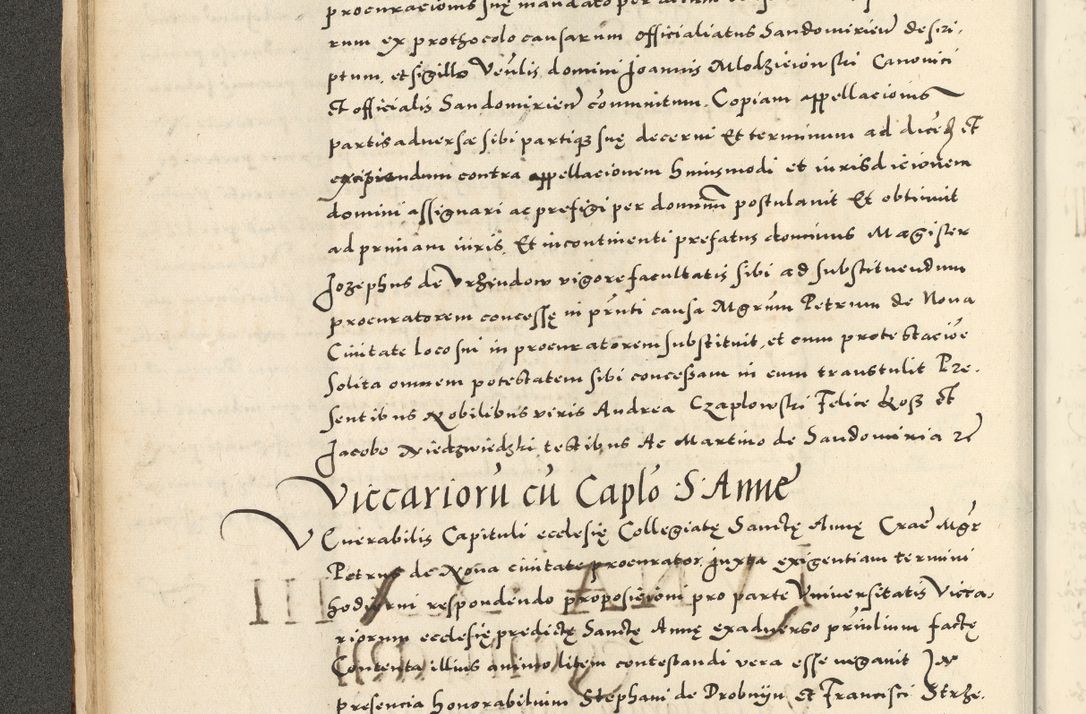 procuracionis suę mandato per
rum ex prothocolo causarum officialiatus Sandomirien descri-
ptum, et sigillo Venlis domini Joannis Mlodzieiowski Canonici
Et officialis Sandomirien communitum. Copiam appellacionis
partis adversæ sibi partique suę decerni Et terminum ad dicend Et
excipiendum contra appellacionem huiusmodi et iurisdicionem
domini assignari ac prefigi per dominum postulavit Et obtinuit
ad primam iuris. Et incontinenti prefatus dominus Magister
Jozephus de Urzendow vigore facultatis sibi ad substituendum
procuratorem concessę in prnti causa Mgrum Petrum de Nova
Civitate loco sui in procuratorem substituit, et cum protestacione
solita omnem potestatem sibi concessam in eum transtulit Pre-
sentibus Nobilibus viris Andrea Czaplowski Felice Kosz Et
Jacobo Niedzwiedzki testibus Ac Martino de Sandomiria etc
Viccarioru cu Caplo S Anne
Venerabilis Capituli ecclesię Collegiatę Sanctę Annę Crac Mgr
Petrus de Nova civitate procurator juxta exigentiam termini
hodierni respondendo proposicioni pro parte Universitatis Vicca-
riorum ecclesię predictę Sanctę Annę ex adverso prinlium factę
Contenta illius animo litem contestandi vera esse negavit In
presencia honorabilium Stephani de Probniin et Francisci Strze-